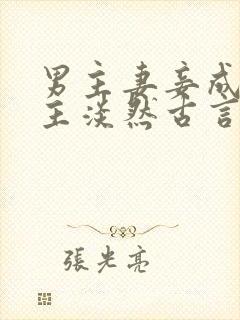 男主妻妾成
主淡然古言
張光亮